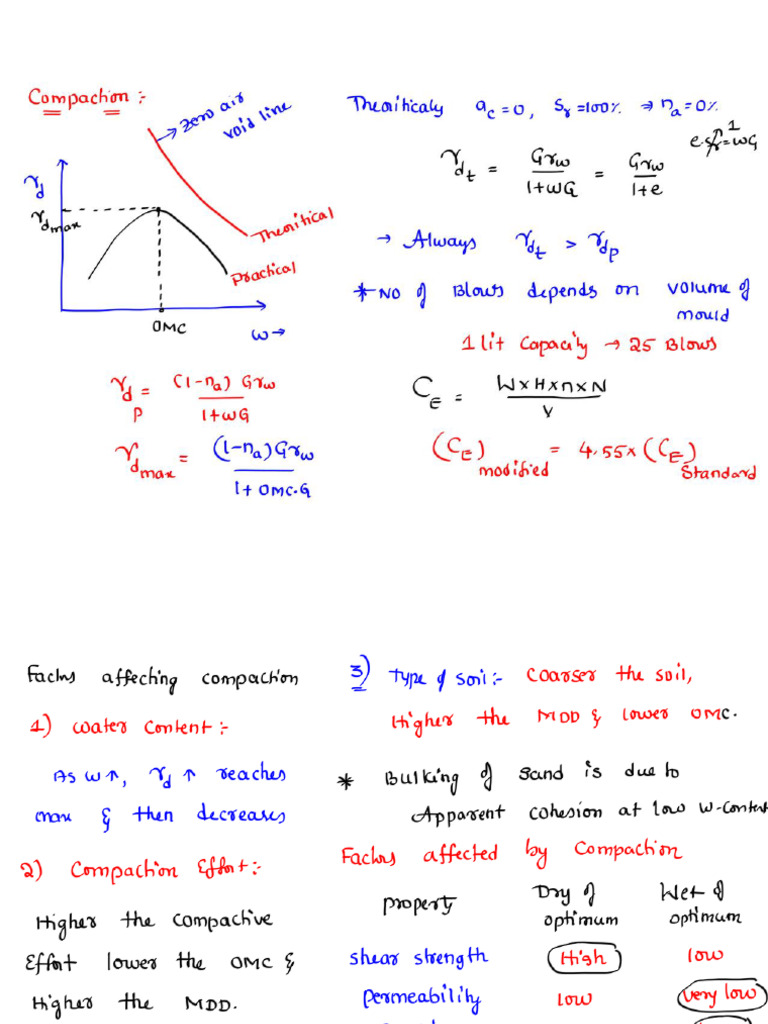 Compaction :-
Zero air
void line
γd
γdmax
Theoritical
Practical
OMC
w→
γdp = (1-na) Gγw / 1+wG
γdmax = (1-na) Gγw / 1+OMC.G
Theoriticaly ac=0, Sr=100% ⇒ na=0%
γdt = Gγw / 1+wG = Gγw / 1+e
e.Sr=wG
1
→ Always γdt > γdp
* No of Blows depends on volume of
mould
1 lit Capacity → 25 Blows
CE = W×H×n×N / V
(CE)modified = 4.55×(CE)Standard
Factors affecting compaction
1) Water Content :-
As w↑, γd ↑ reaches
max & then decreases
2) Compaction Effort :-
Higher the compactive
Effort lower the OMC &
Higher the MDD.
3) Type of Soil :- Coarser the soil,
Higher the MDD & lower OMC.
* Bulking of Sand is due to
Apparent cohesion at low w-content
Factors affected by Compaction
property Dry of optimum Wet of optimum
shear strength High low
permeability low very low